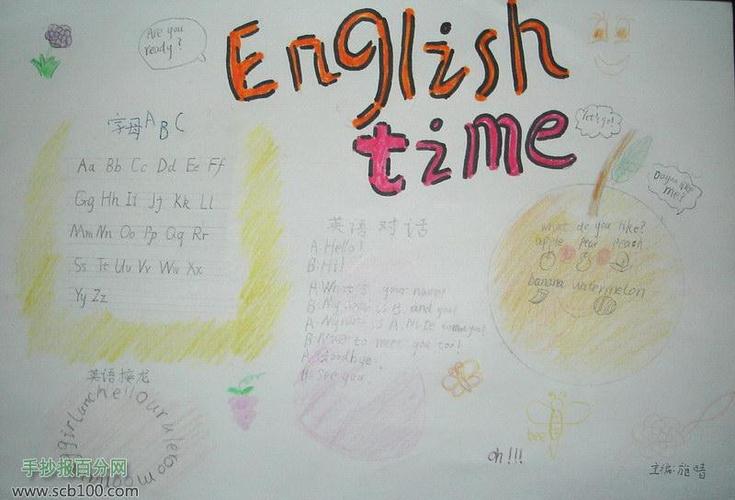 Are you
ready?
English
time
字母ABC
Aa Bb Cc Dd Ee Ff
Gg Hh Ii Jj Kk Ll
Mm Nn Oo Pp Qq Rr
Ss Tt Uu Vv Ww Xx
Yy Zz
英语对话
A: Hello!
B: Hi!
A: What's your name?
B: My name is B, and you?
A: My name is A.
B: Nice to meet you too!
A: Goodbye.
B: See you.
Let's go!
Do you like
me?
what do you like?
apple pear peach
banana watermelon
英语接龙
bee
oh!!!
主编:施晴
手抄报百分网
www.scb100.com